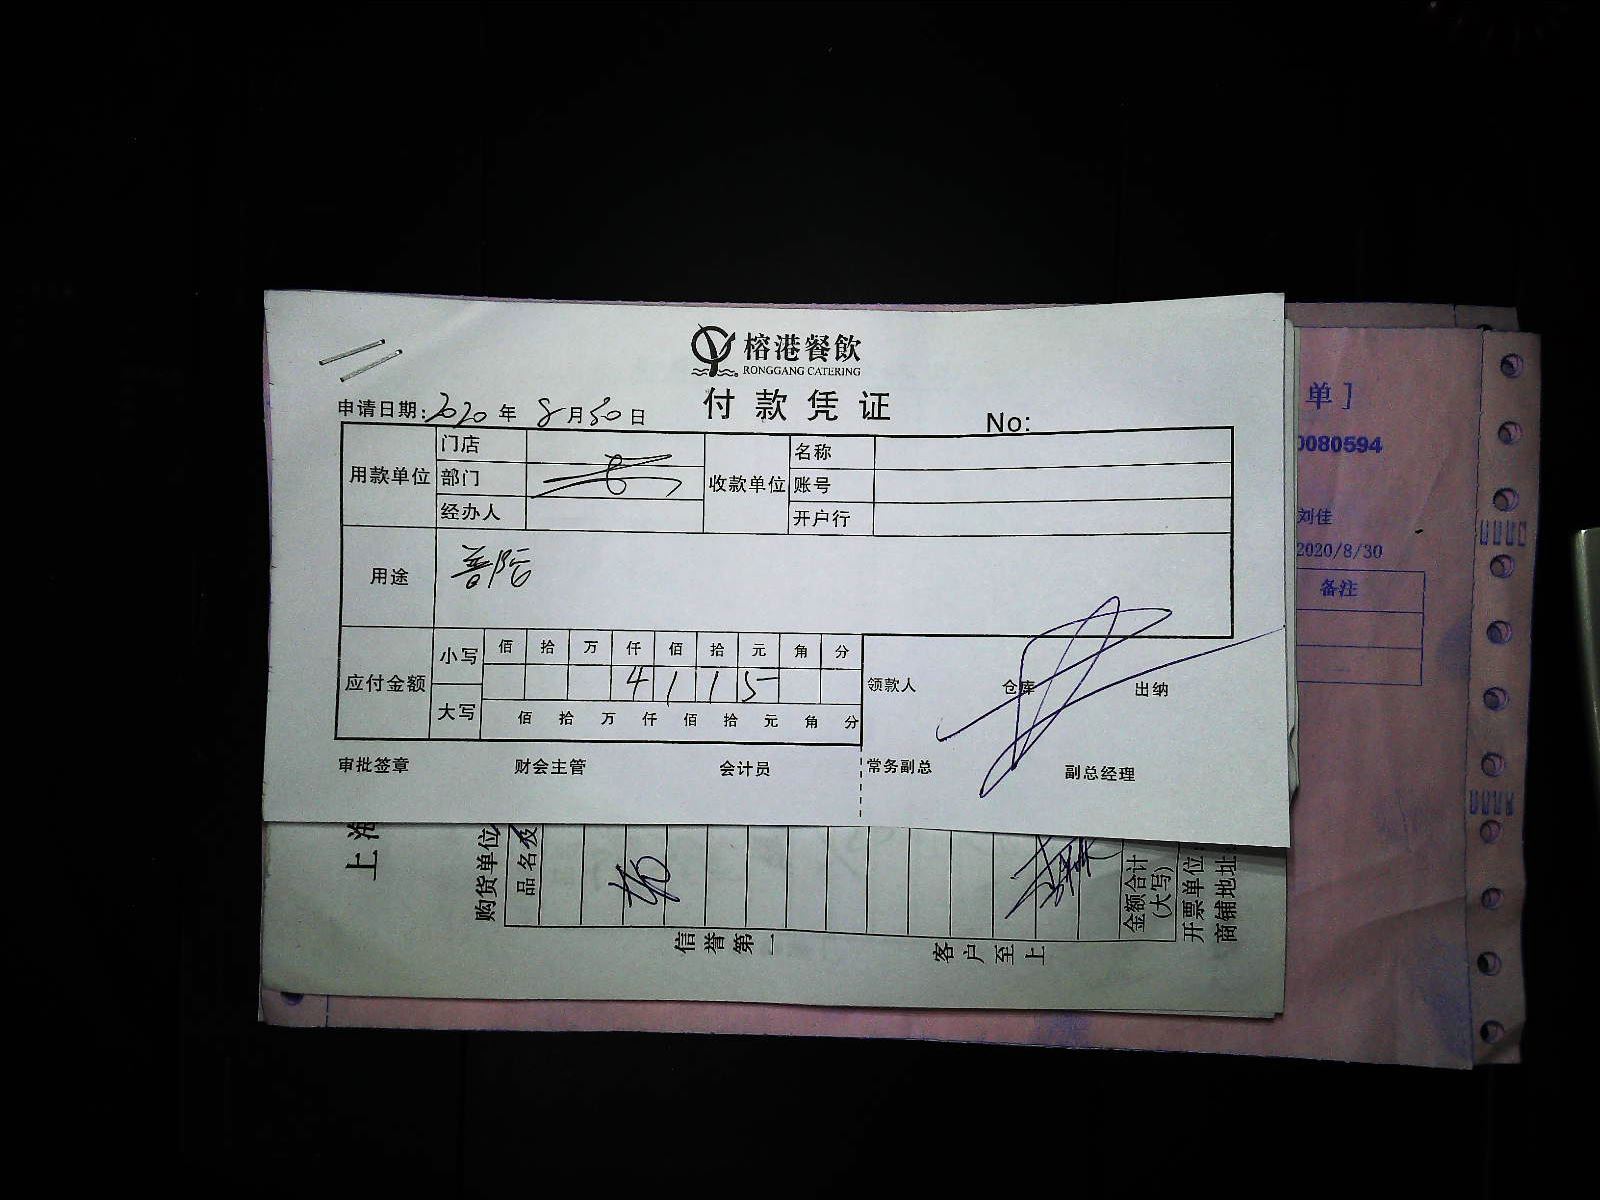 榕港餐飲
RONGGANG CATERING
付款凭证
申请日期: 2020 年 8 月 30 日 No:
用款单位 门店 收款单位 名称
部门 账号
经办人 开户行
用途 普陀
应付金额 小写 佰 拾 万 仟 佰 拾 元 角 分
4 1 1 5
大写 佰 拾 万 仟 佰 拾 元 角 分
领款人 仓库 出纳
审批签章 财会主管 会计员 常务副总 副总经理
单]
0080594
刘佳
2020/8/30
备注
上海
购货单位
品名及
金额合计
(大写)
开票单位:
商铺地址:
信誉第一 客户至上